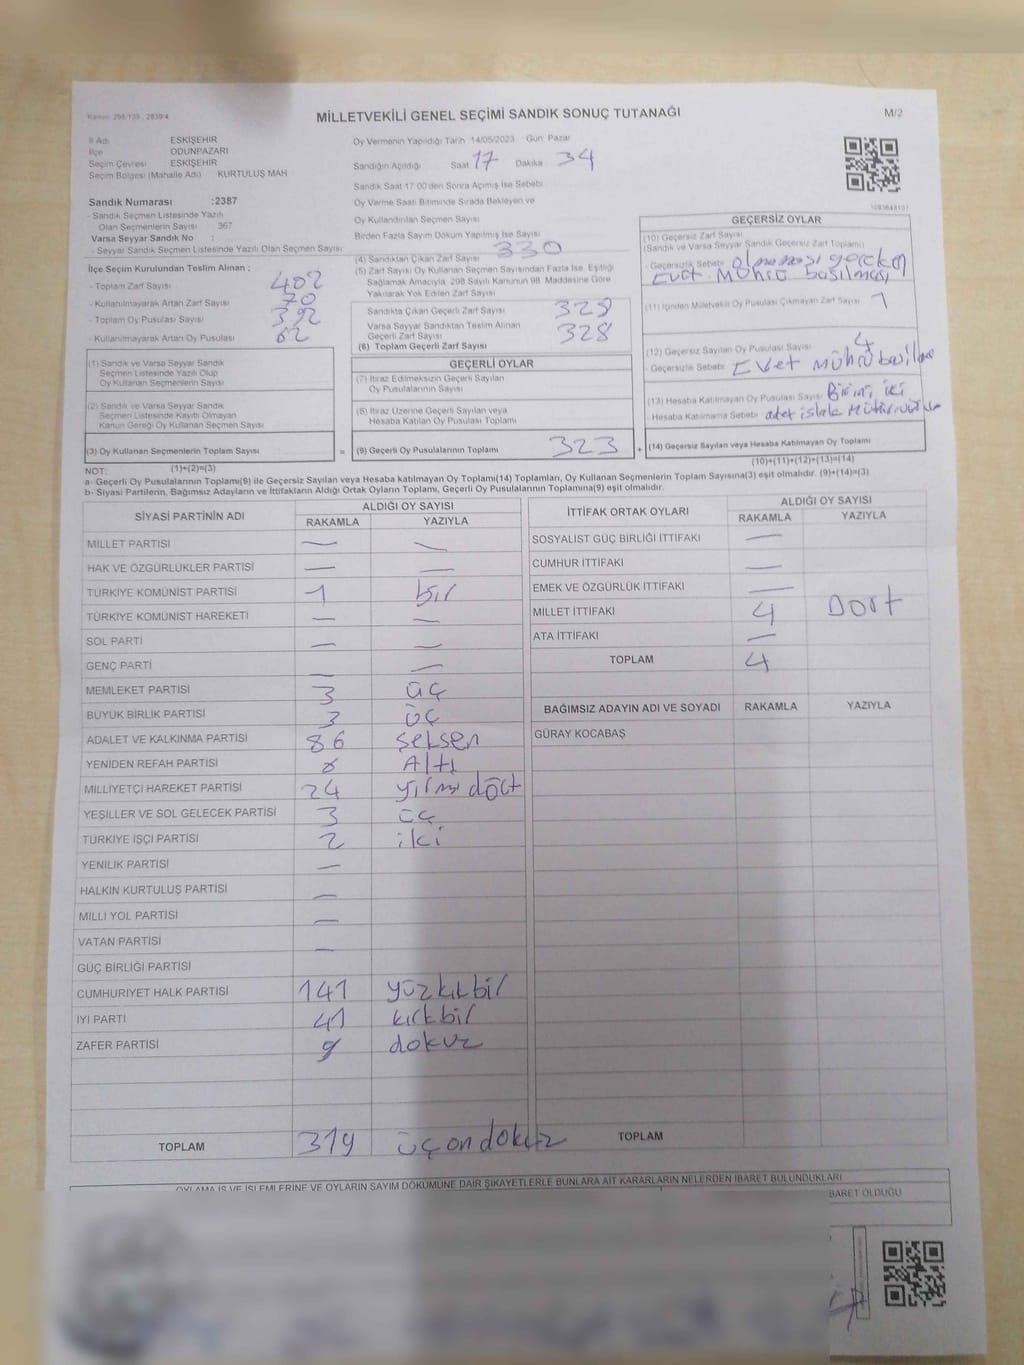 MİLLETVEKİLİ GENEL SEÇİMİ SANDIK SONUÇ TUTANAĞI
M/2
İl Adı ESKİŞEHİR
İlçe ODUNPAZARI
Seçim Çevresi ESKİŞEHİR
Seçim Bölgesi (Mahalle Adı) KURTULUŞ MAH
Sandık Numarası :2387
- Sandık Seçmen Listesinde Yazılı
Olan Seçmenlerin Sayısı : 367
Varsa Seyyar Sandık No :
- Seyyar Sandık Seçmen Listesinde Yazılı Olan Seçmen Sayısı:
İlçe Seçim Kurulundan Teslim Alınan :
- Toplam Zarf Sayısı 402
- Kullanılmayarak Artan Zarf Sayısı 70
- Toplam Oy Pusulası Sayısı 392
- Kullanılmayarak Artan Oy Pusulası 62
(1) Sandık ve Varsa Seyyar Sandık
Seçmen Listesinde Yazılı Olup
Oy Kullanan Seçmenlerin Sayısı
(2) Sandık ve Varsa Seyyar Sandık
Seçmen Listesinde Kayıtlı Olmayan
Kanun Gereği Oy Kullanan Seçmen Sayısı
(3) Oy Kullanan Seçmenlerin Toplam Sayısı =
Oy Vermenin Yapıldığı Tarih 14/05/2023 Gün: Pazar
Sandığın Açıldığı Saat 17 Dakika 34
Sandık Saat 17:00'den Sonra Açımış İse Sebebi
Oy Verme Saati Bitiminde Sırada Bekleyen ve
Oy Kullandırılan Seçmen Sayısı
Birden Fazla Sayım Döküm Yapılmış İse Sayısı
(4) Sandıktan Çıkan Zarf Sayısı 330
(5) Zarf Sayısı Oy Kullanan Seçmen Sayısından Fazla İse, Eşitliği
Sağlamak Amacıyla 298 Sayılı Kanunun 98. Maddesine Göre
Yakılarak Yok Edilen Zarf Sayısı
Sandıkta Çıkan Geçerli Zarf Sayısı 328
Varsa Seyyar Sandıktan Teslim Alınan
Geçerli Zarf Sayısı 328
(6) Toplam Geçerli Zarf Sayısı
GEÇERLİ OYLAR
(7) İtiraz Edilmeksizin Geçerli Sayılan
Oy Pusulalarının Sayısı
(8) İtiraz Üzerine Geçerli Sayılan veya
Hesaba Katılan Oy Pusulası Toplamı
(9) Geçerli Oy Pusulalarının Toplamı 323 +
GEÇERSİZ OYLAR
(10) Geçersiz Zarf Sayısı
(Sandık ve Varsa Seyyar Sandık Geçersiz Zarf Toplamı)
- Geçersizlik Sebebi: olmaması gereken
Evet Mührü basılması
(11) İçinden Milletvekili Oy Pusulası Çıkmayan Zarf Sayısı 1
(12) Geçersiz Sayılan Oy Pusulası Sayısı 4
- Geçersizlik Sebebi: Evet Mührü
(13) Hesaba Katılmayan Oy Pusulası Sayısı Birini iki
Hesaba Katılmama Sebebi adet ıslak
(14) Geçersiz Sayılan veya Hesaba Katılmayan Oy Toplamı
NOT: (1)+(2)=(3)
(10)+(11)+(12)+(13)=(14)
a- Geçerli Oy Pusulalarının Toplamı(9) ile Geçersiz Sayılan veya Hesaba katılmayan Oy Toplamı(14) Toplamları, Oy Kullanan Seçmenlerin Toplam Sayısına(3) eşit olmalıdır. (9)+(14)=(3)
b- Siyasi Partilerin, Bağımsız Adayların ve İttifakların Aldığı Ortak Oyların Toplamı, Geçerli Oy Pusulalarının Toplamına(9) eşit olmalıdır.
SİYASİ PARTİNİN ADI ALDIĞI OY SAYISI
RAKAMLA YAZIYLA
MİLLET PARTİSİ — —
HAK VE ÖZGÜRLÜKLER PARTİSİ — —
TÜRKİYE KOMÜNİST PARTİSİ 1 bir
TÜRKİYE KOMÜNİST HAREKETİ — —
SOL PARTİ — —
GENÇ PARTİ — —
MEMLEKET PARTİSİ 3 üç
BÜYÜK BİRLİK PARTİSİ 3 üç
ADALET VE KALKINMA PARTİSİ 86 seksen
YENİDEN REFAH PARTİSİ 6 Altı
MİLLİYETÇİ HAREKET PARTİSİ 24 yirmi dört
YEŞİLLER VE SOL GELECEK PARTİSİ 3 üç
TÜRKİYE İŞÇİ PARTİSİ 2 iki
YENİLİK PARTİSİ —
HALKIN KURTULUŞ PARTİSİ —
MİLLİ YOL PARTİSİ —
VATAN PARTİSİ —
GÜÇ BİRLİĞİ PARTİSİ
CUMHURİYET HALK PARTİSİ 141 yüzkırkbir
İYİ PARTİ 41 kırkbir
ZAFER PARTİSİ 9 dokuz
TOPLAM 319 üçondokuz
İTTİFAK ORTAK OYLARI ALDIĞI OY SAYISI
RAKAMLA YAZIYLA
SOSYALİST GÜÇ BİRLİĞİ İTTİFAKI —
CUMHUR İTTİFAKI —
EMEK VE ÖZGÜRLÜK İTTİFAKI —
MİLLET İTTİFAKI 4 Dört
ATA İTTİFAKI —
TOPLAM 4
BAĞIMSIZ ADAYIN ADI VE SOYADI RAKAMLA YAZIYLA
GÜRAY KOCABAŞ
TOPLAM
OYLAMA İŞ VE İŞLEMLERİNE VE OYLARIN SAYIM DÖKÜMÜNE DAİR ŞİKAYETLERLE BUNLARA AİT KARARLARIN NELERDEN İBARET BULUNDUKLARI
BARET OLDUĞU